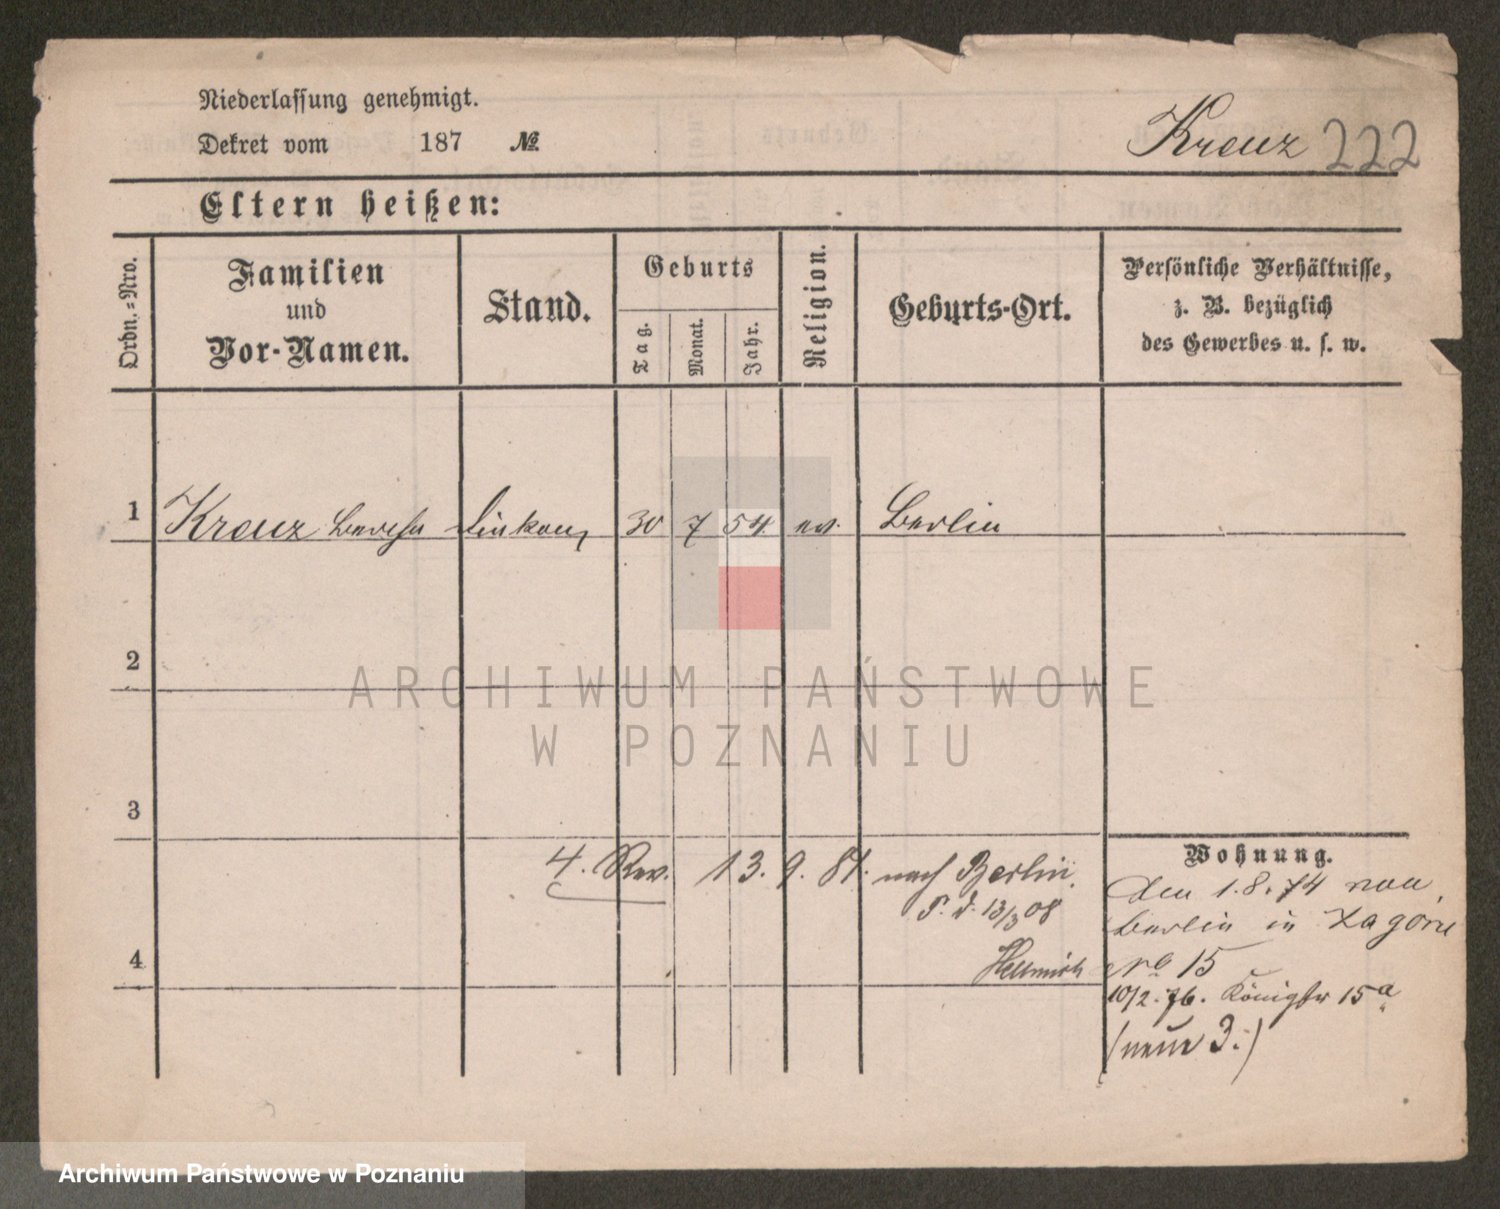 Niederlassung genehmigt.
Dekret vom 187 №.
Kreuz 222
Eltern heißen:
Ordn.-Nro.
Familien
und
Vor-Namen.
Stand.
Geburts
Tag.
Monat.
Jahr.
Religion.
Geburts-Ort.
Persönliche Verhältnisse,
z. B. bezüglich
des Gewerbes u. s. w.
1 Kreuz 30 7 54 ev. Berlin
2
3
4. Rev. 13. 9. 81. nach Berlin.
P. d. 13/3 08
4
Wohnung.
den 1.8.74 von
Berlin in Zagórze
No 15
10/2.76. Königstr 15a
(neue 3.)
ARCHIWUM PAŃSTWOWE
W POZNANIU
Archiwum Państwowe w Poznaniu